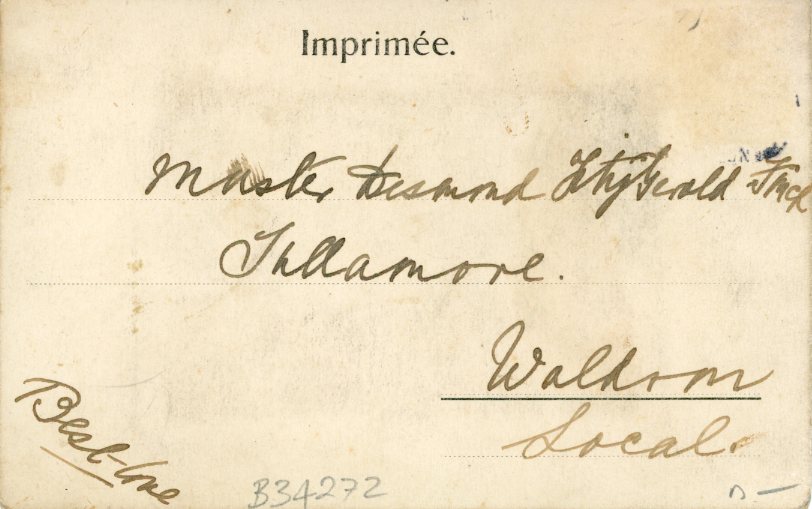 Imprimée.
Master Desmond FitzGerald Finch
Tullamore.
Waldrom
Local.
Best love
B34272